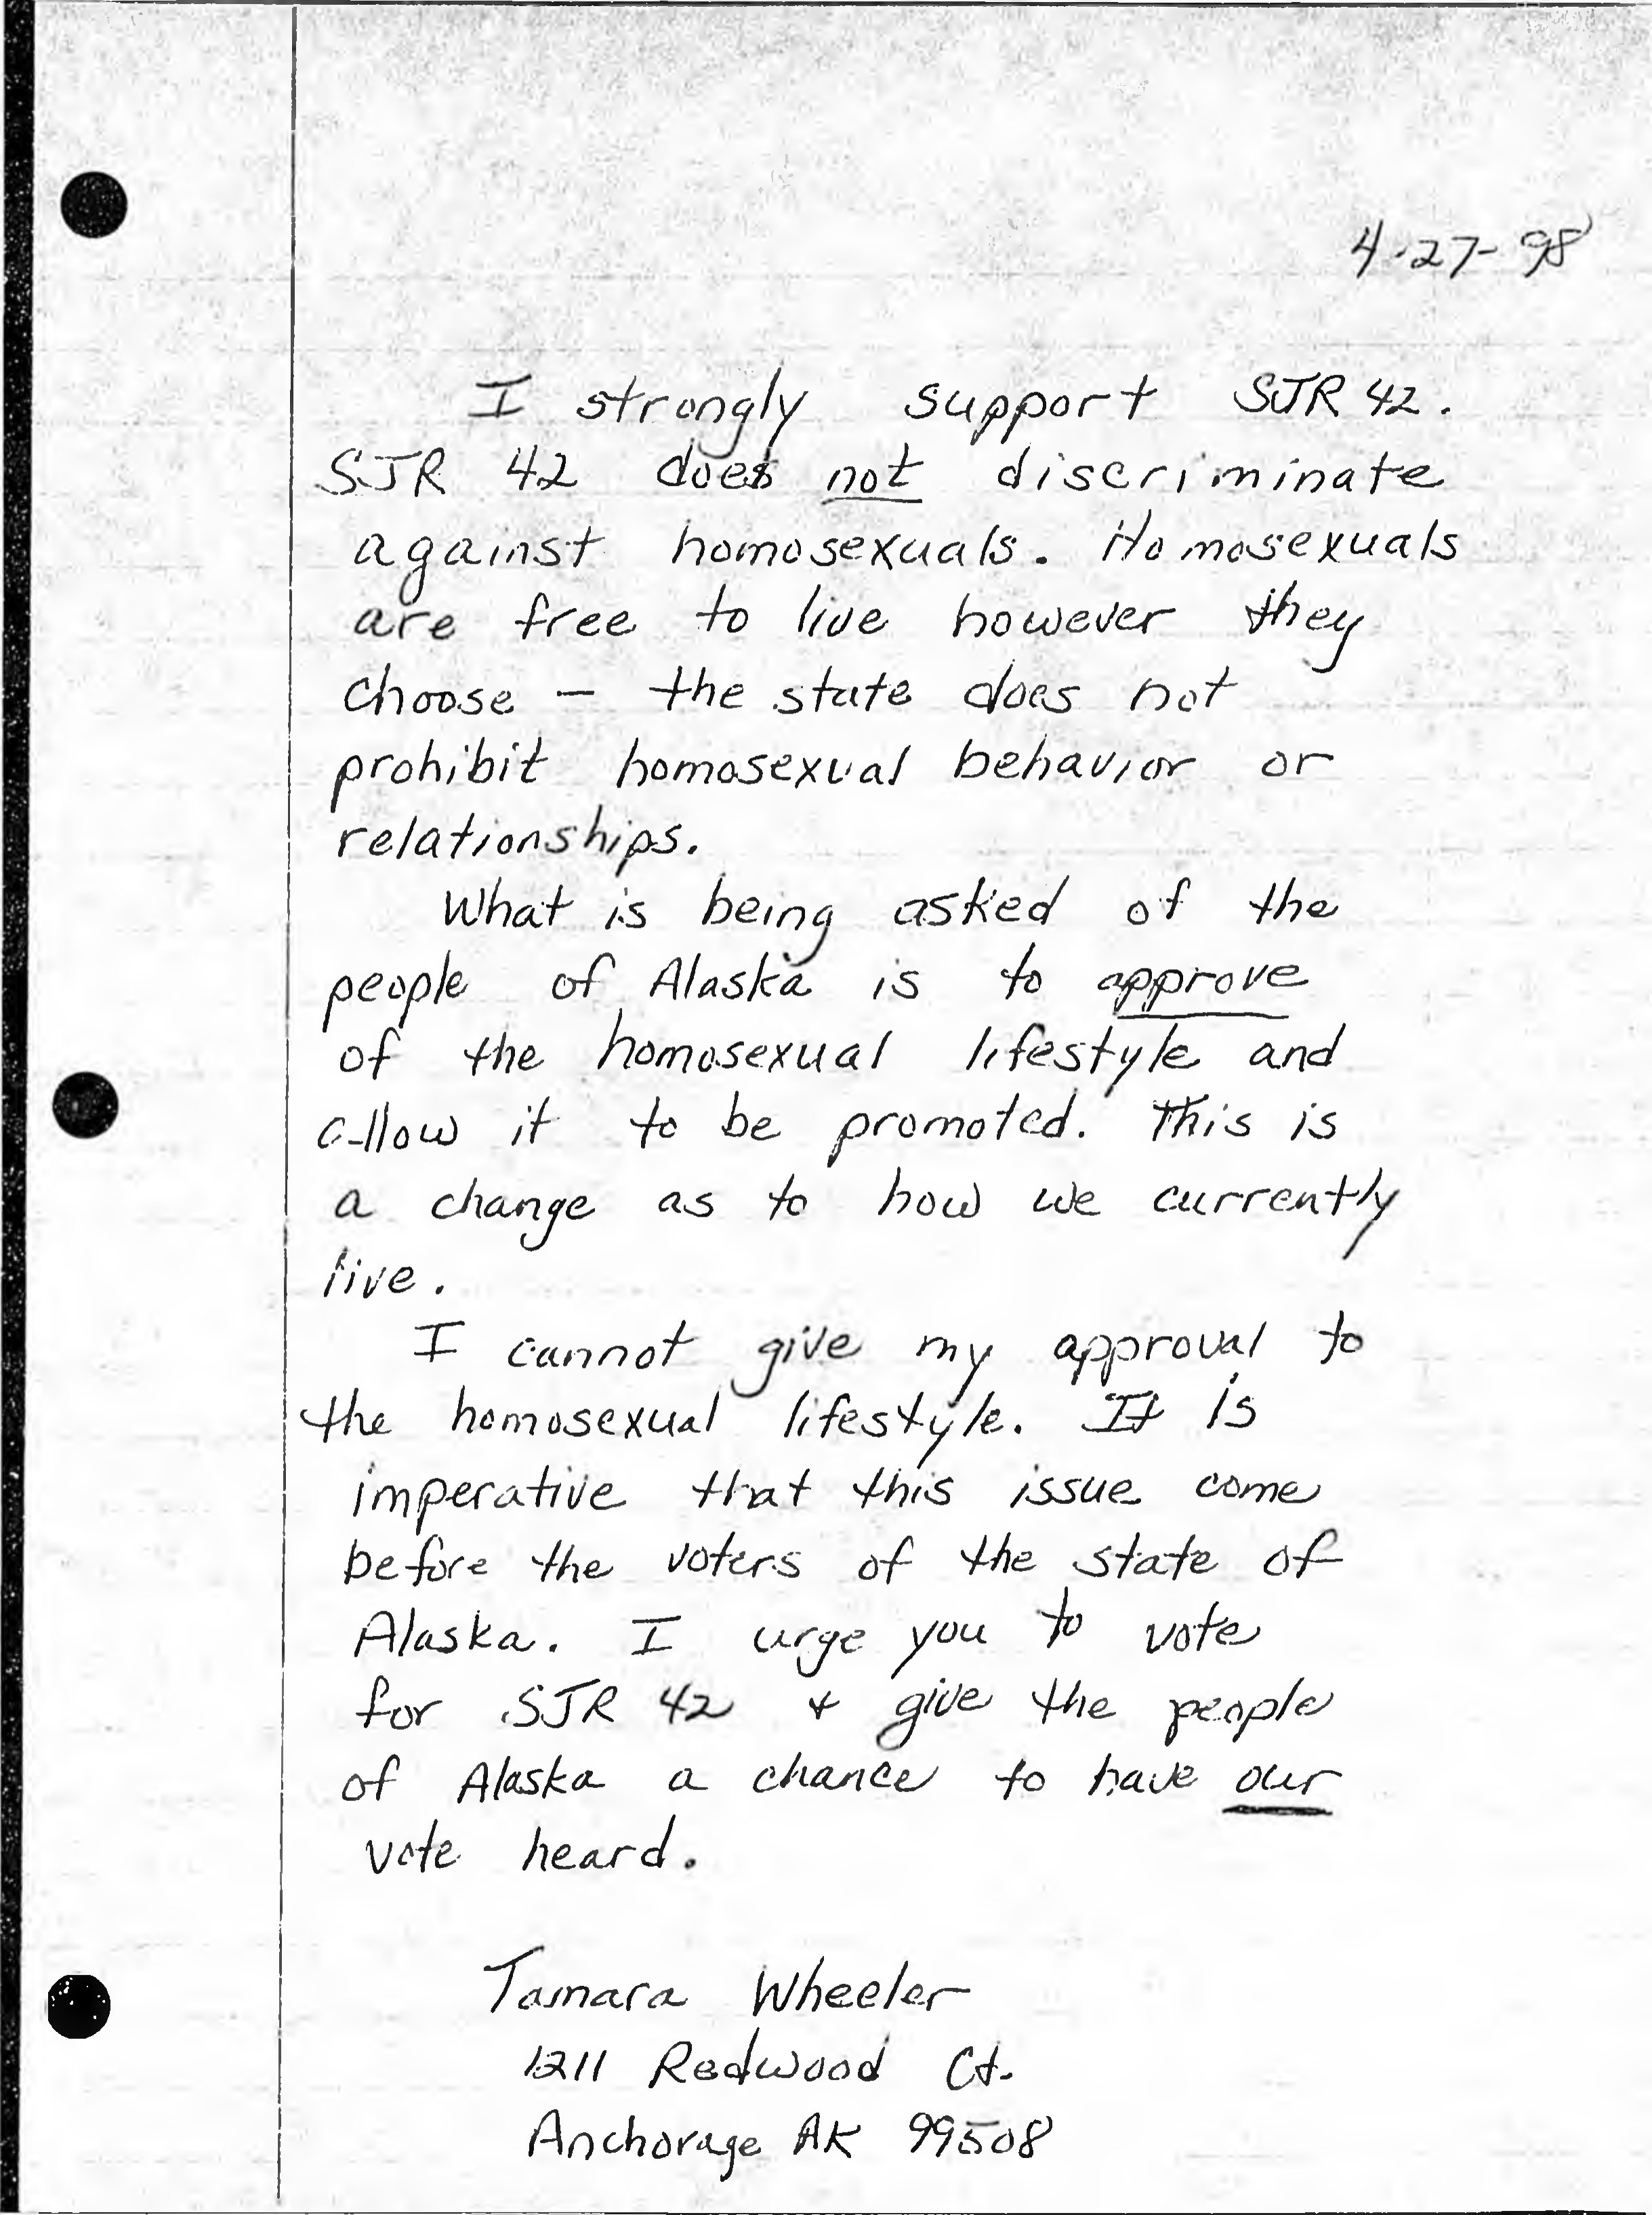 4-27-98
I strongly support SJR 42.
SJR 42 does not discriminate
against homosexuals. Homosexuals
are free to live however they
choose – the state does not
prohibit homosexual behavior or
relationships.
What is being asked of the
people of Alaska is to approve
of the homosexual lifestyle and
allow it to be promoted. This is
a change as to how we currently
live.
I cannot give my approval to
the homosexual lifestyle. It is
imperative that this issue come
before the voters of the state of
Alaska. I urge you to vote
for SJR 42 & give the people
of Alaska a chance to have our
vote heard.
Tamara Wheeler
1211 Redwood Ct.
Anchorage AK 99508